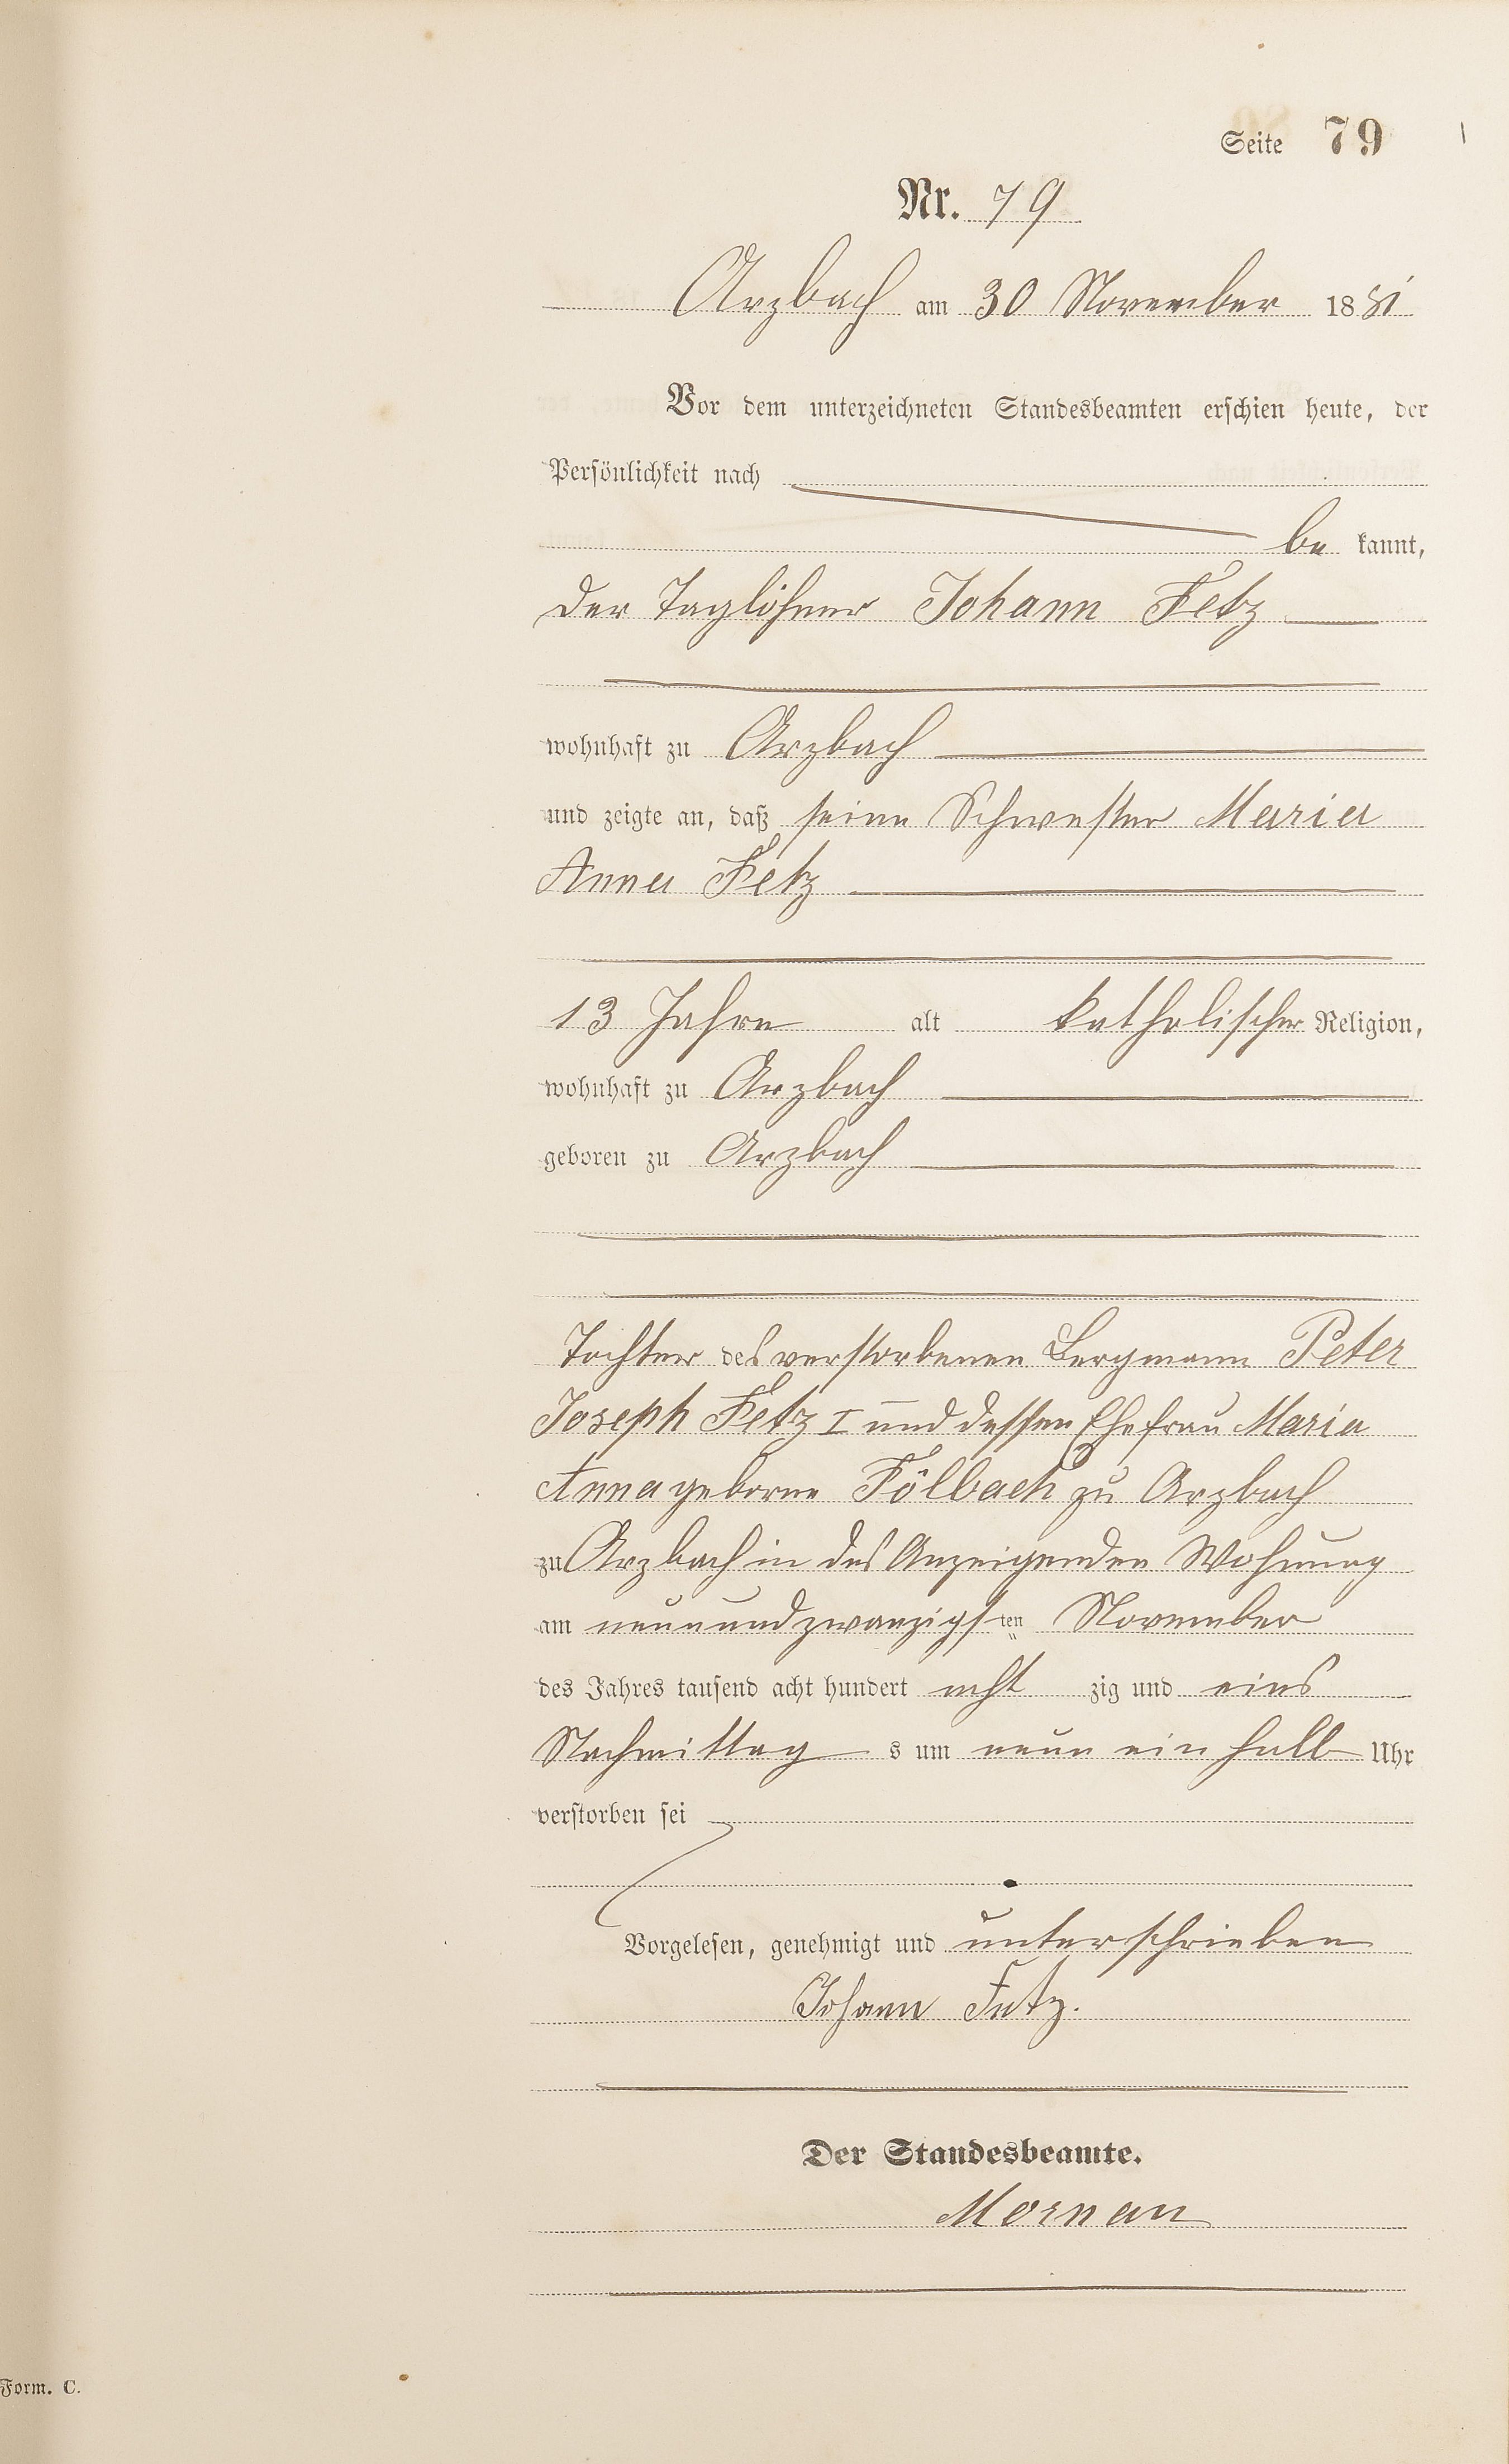 Seite 79
Nr. 79
Arzbach am 30 November 1881
Vor dem unterzeichneten Standesbeamten erschien heute, der
Persönlichkeit nach
be kannt,
der Taglöhner Johann Fetz
wohnhaft zu Arzbach
und zeigte an, daß seine Schwester Maria
Anna Fetz
13 Jahre alt katholischer Religion,
wohnhaft zu Arzbach
geboren zu Arzbach
Tochter des verstorbenen Bergmann Peter
Joseph Fetz I und dessen Ehefrau Maria
Anna geborne Fölbach zu Arzbach
zu Arzbach in des Anzeigenden Wohnung
am neunundzwanzigsten November
des Jahres tausend acht hundert acht zig und eins
Nachmittag s um neun ein halb Uhr
verstorben sei
Vorgelesen, genehmigt und unterschrieben
Johann Fetz.
Der Standesbeamte.
Mornau
Form. C.